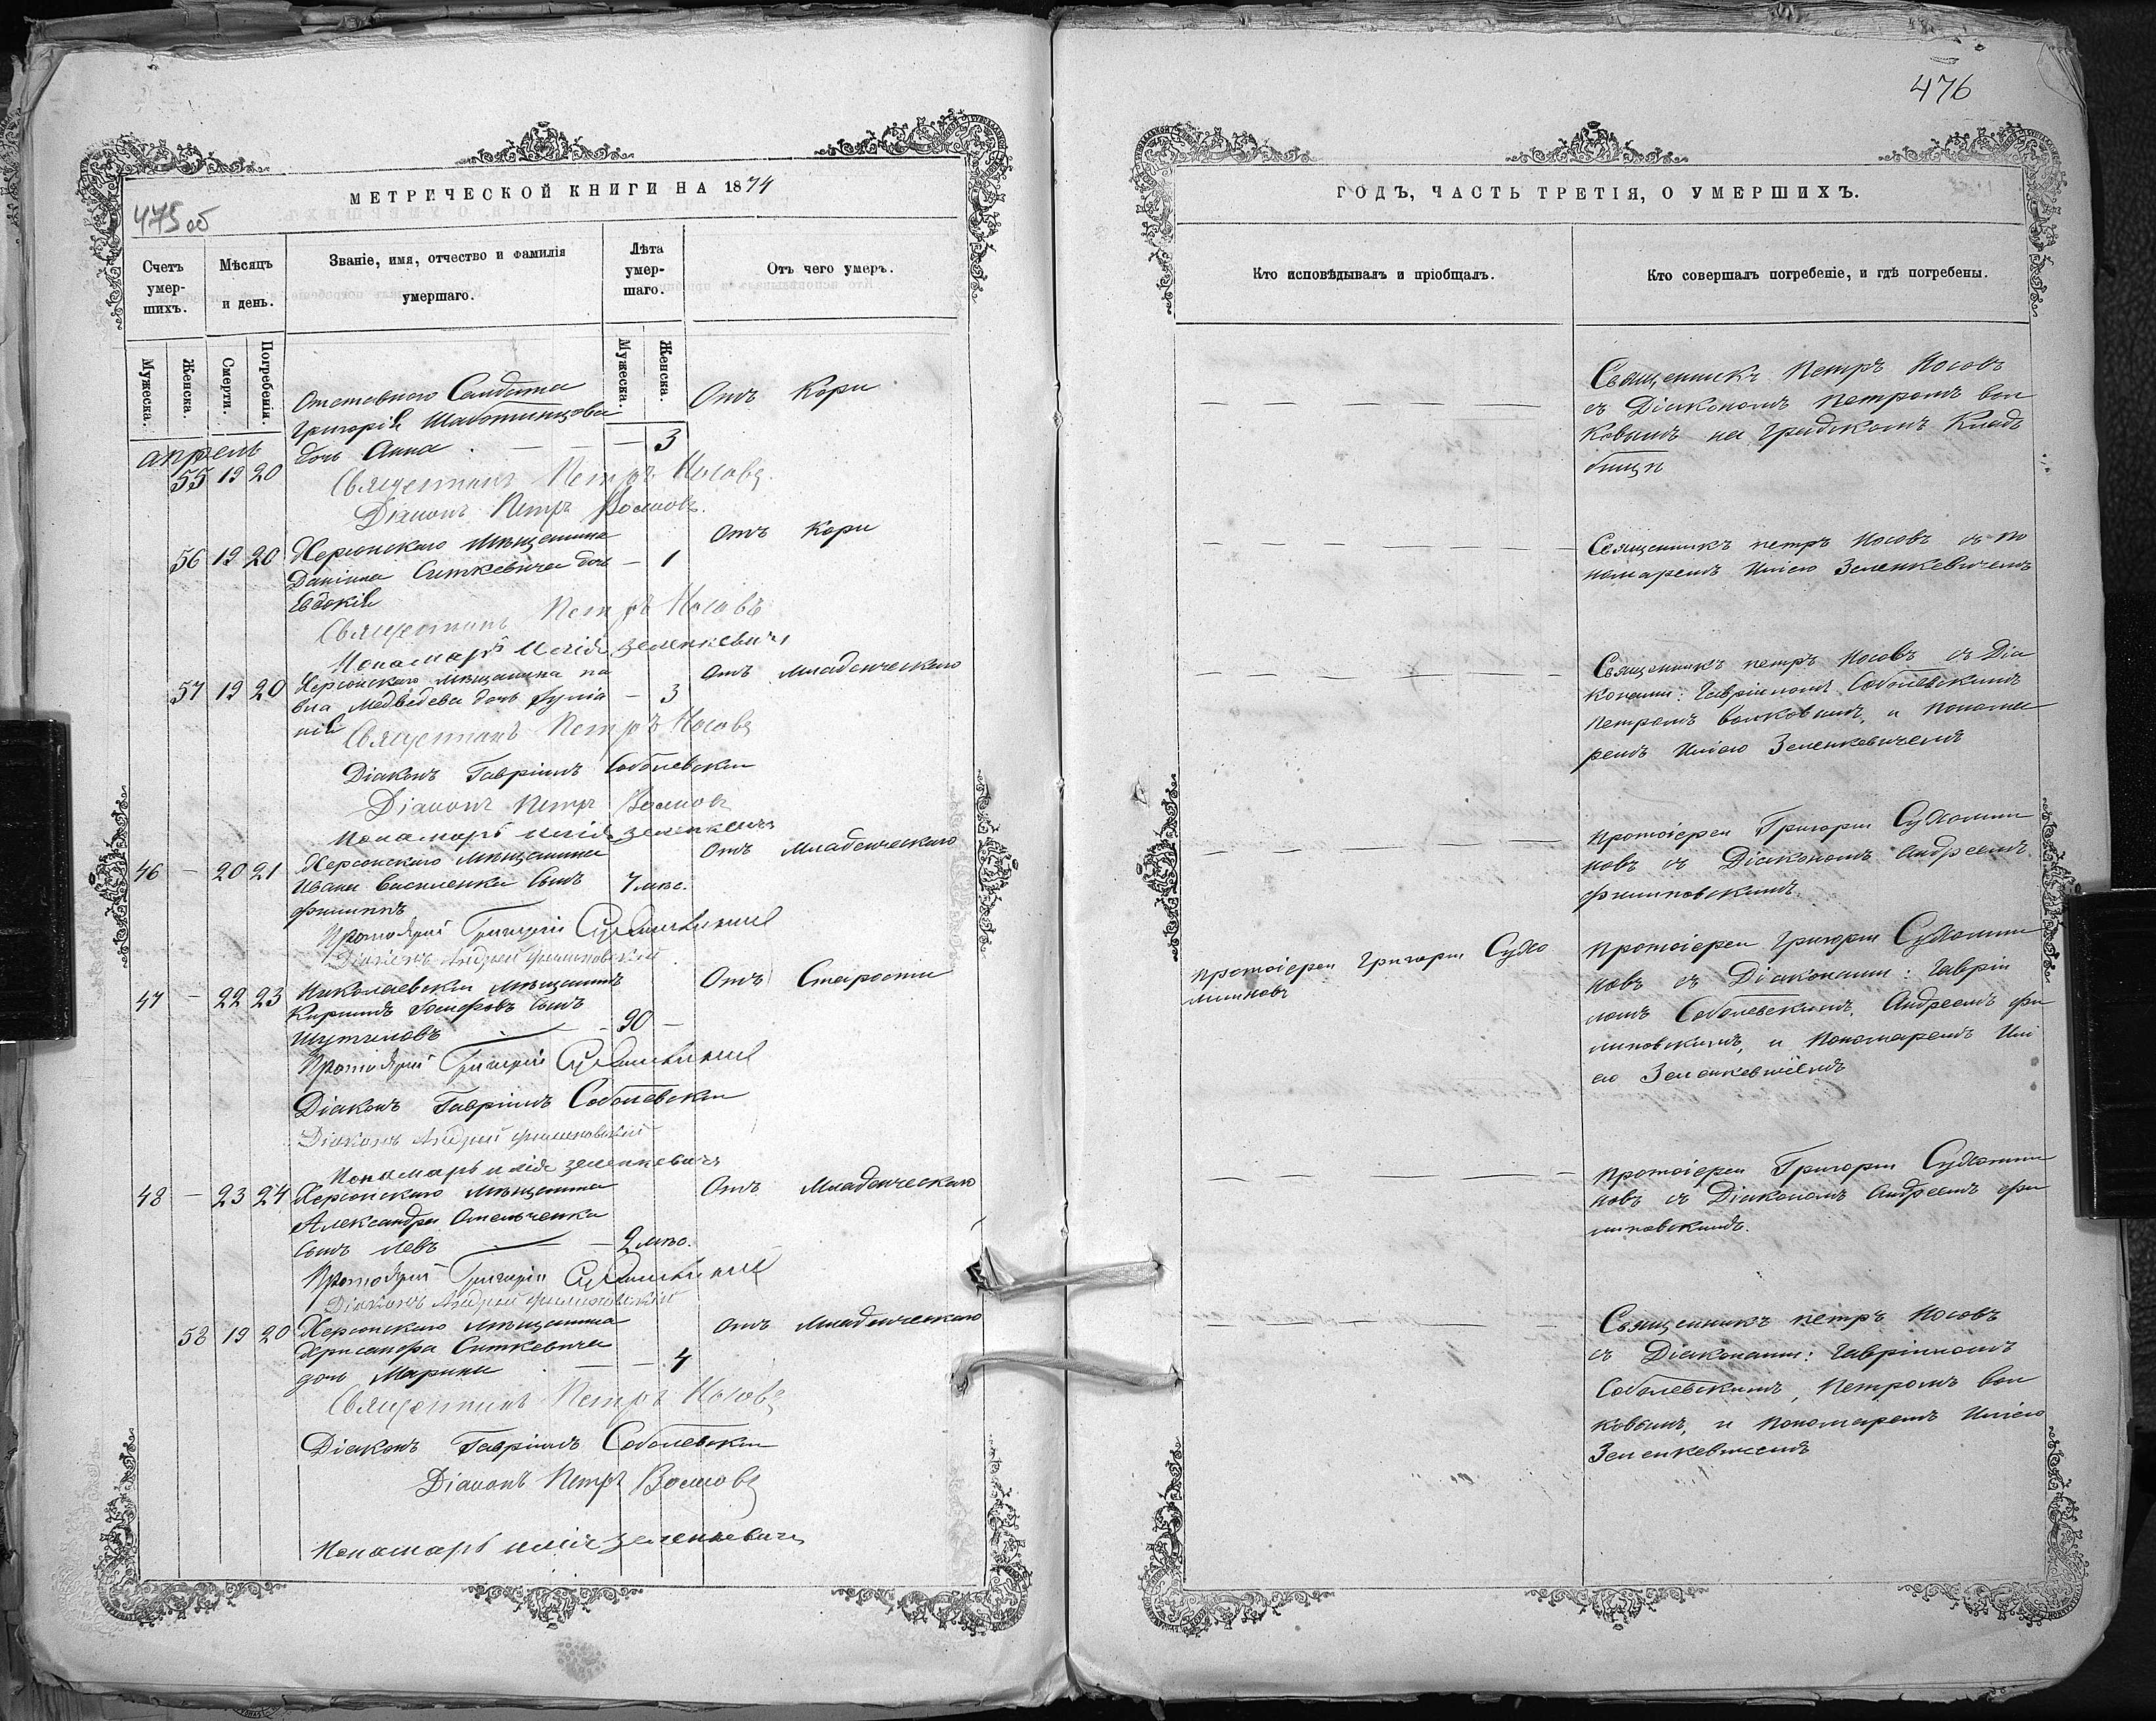 476
МЕТРИЧЕСКОЙ КНИГИ НА 1874
475 об
Счетъ умер-шихъ.
Мѣсяцъ и день.
Званіе, имя, отчество и фамилія умершаго.
Лѣта умер-шаго.
Отъ чего умеръ.
Мужеска.
Женска.
Смерти.
Погребенія.
Мужеска.
Женска.
апрель
Отставного Солдата Отъ Кори
Григорія Шаботинцова
55 19 20 дочь Анна 3
Священникъ Петръ Носовъ
Діаконъ Петръ Волковъ
56 19 20 Херсонскаго мѣщанина Отъ Кори
Даніила Ситкевича дочь 1
Евдокія
Священникъ Петръ Носовъ
Пономарь Илія Зеленкевичъ
57 19 20 Херсонскаго мѣщанина па Отъ Младенческаго
вла Медвѣдева дочь Іуліа 3
нія
Священникъ Петръ Носовъ
Діаконъ Гавріилъ Соболевскій
Діаконъ Петръ Волковъ
Пономарь Илія Зеленкевичъ
46 20 21 Херсонскаго мѣщанина Отъ Младенческаго
Ивана Василенка сынъ 7 мѣс.
Филиппъ
Протоіерей Григорій
Діаконъ Андрей Филиповскій
47 22 23 Николаевскій мѣщанинъ Отъ Старости
Кирилъ сынъ
90
Протоіерей Григорій
Діаконъ Гавріилъ Соболевскій
Діаконъ Андрей Филиповскій
Пономарь Илія Зеленкевичъ
48 23 24 Херсонскаго мѣщанина Отъ Младенческаго
Александра Омельченка
сынъ Левъ 2 мѣс.
Протоіерей Григорій
Діаконъ Андрей Филиповскій
58 19 20 Херсонскаго мѣщанина Отъ Младенческаго
Хрисанфа Ситкевича
дочь Марина 4
Священникъ Петръ Носовъ
Діаконъ Гавріилъ Соболевскій
Діаконъ Петръ Волковъ
Пономарь Илія Зеленкевичъ
ГОДЪ, ЧАСТЬ ТРЕТІЯ, О УМЕРШИХЪ.
Кто исповѣдывалъ и пріобщалъ.
Кто совершалъ погребеніе, и гдѣ погребены.
Священникъ Петръ Носовъ
съ Діакономъ Петромъ Вол
ковымъ на Градскомъ Клад
бищѣ
Священникъ Петръ Носовъ съ по
номаремъ Иліею Зеленкевичемъ
Священникъ Петръ Носовъ съ Діа
конами: Гавріиломъ Соболевскимъ
Петромъ Волковымъ, и Понома
ремъ Иліею Зеленкевичемъ
Протоіерей Григорій
новъ съ Діакономъ Андреемъ
Филиповскимъ.
Протоіерей Григорій
Протоіерей Григорій
новъ съ Діаконами: Гавріи
ломъ Соболевскимъ, Андреемъ Фи
липовскимъ, и Пономаремъ Илі
ею Зеленкевичемъ
Протоіерей Григорій
новъ съ Діакономъ Андреемъ Фи
липовскимъ.
Священникъ Петръ Носовъ
съ Діаконами: Гавріиломъ
Соболевскимъ, Петромъ Вол
ковымъ, и Пономаремъ Иліею
Зеленкевичемъ